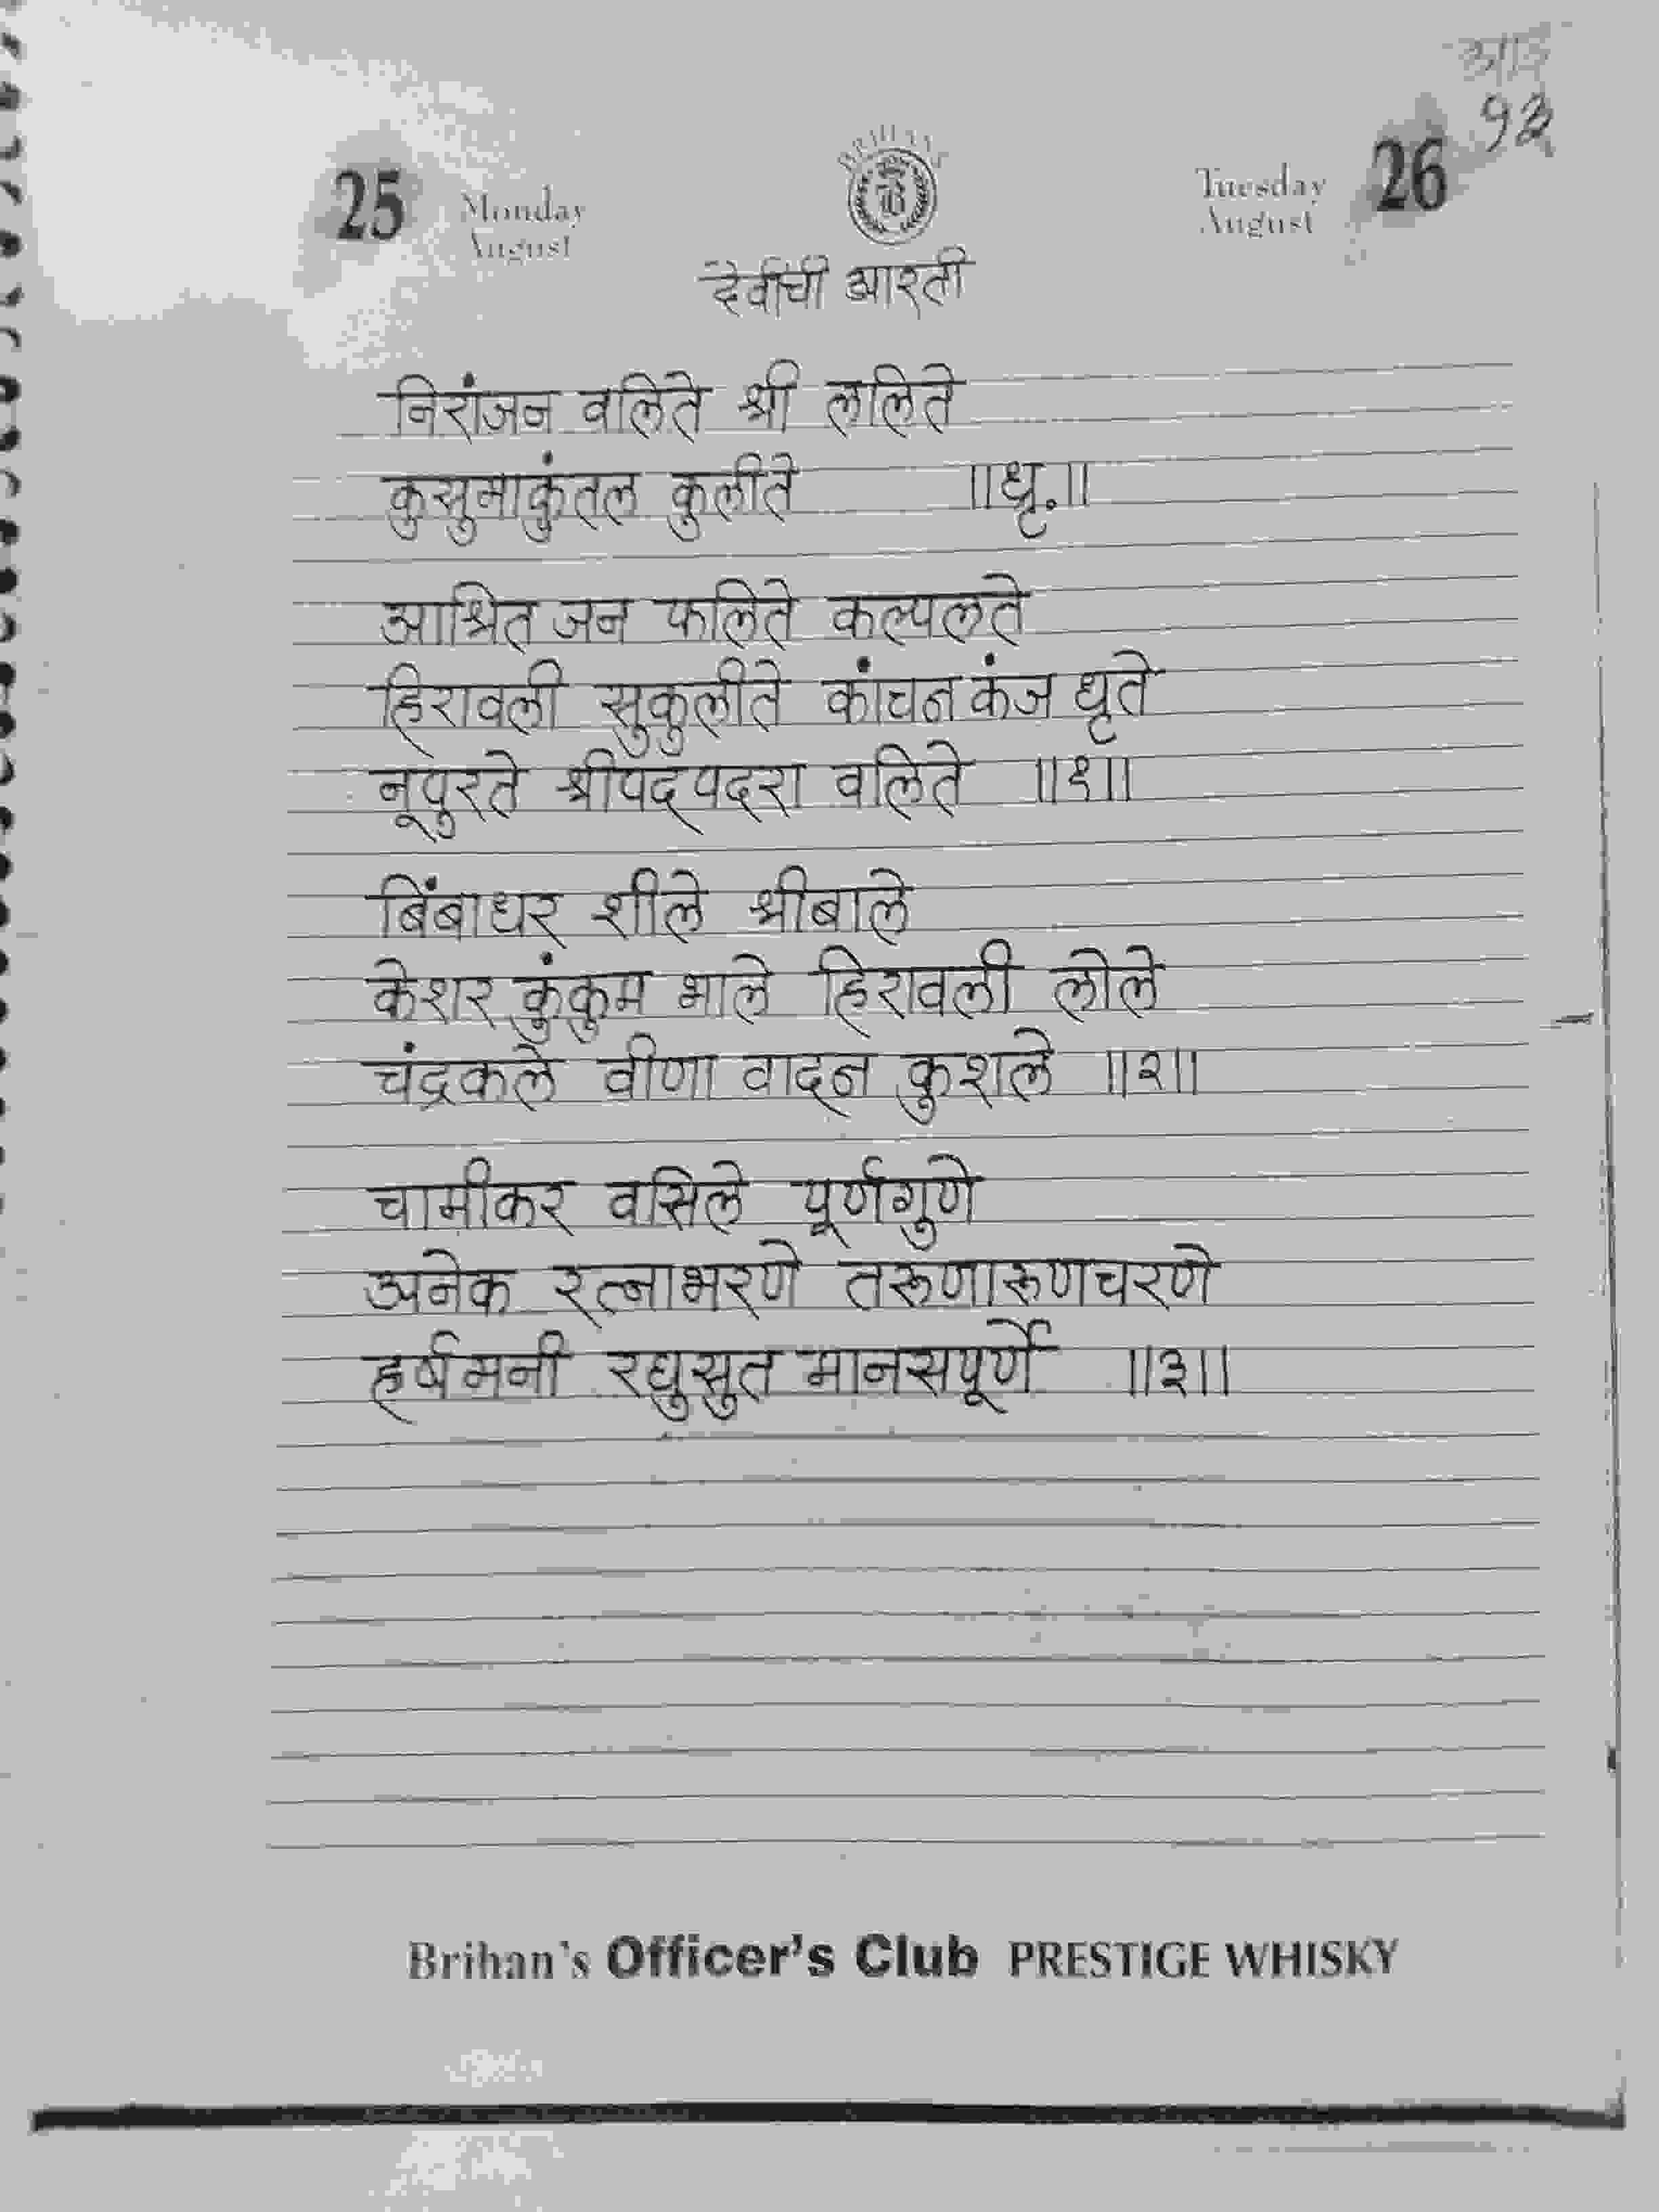 १३
BRIHANS
25 Monday August
Tuesday August 26
देवीची आरती
निरांजन वलिते श्री ललिते
कुसुमाकुंतल कुलीते ॥धृ.॥
आश्रित जन फलिते कल्पलते
हिरावली सुकुलीते कांचन कंज धृते
नूपुरते श्रीपद्पदरा वलिते ॥१॥
बिंबाधर शीले श्रीबाले
केशर कुंकुम भाले हिरावली लोले
चंद्रकले वीणा वादन कुशले ॥२॥
चामीकर वसिले पूर्णगुणे
अनेक रत्नाभरणे तरूणारूणचरणे
हर्षमनी रघुसुत मानसपूर्णे ॥३॥
Brihan's Officer's Club PRESTIGE WHISKY